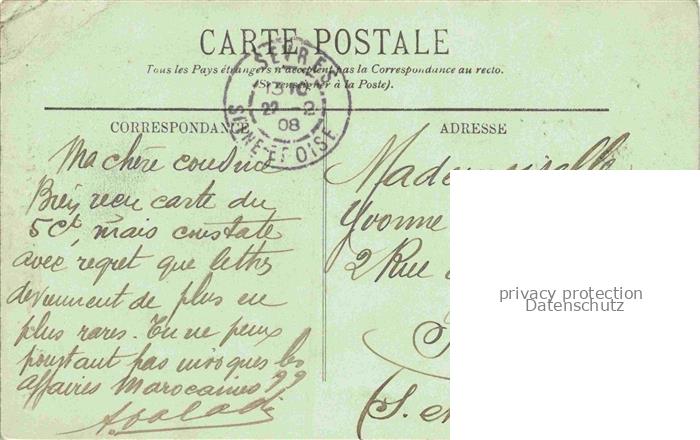 CARTE POSTALE
Tous les Pays étrangers n'acceptent pas la Correspondance au recto.
(Se renseigner à la Poste).
SEVRES
22 -2
08
SEINE-ET-OISE
CORRESPONDANCE
ADRESSE
Ma chère cousine
Bien reçu carte du
5 ct, mais constate
avec regret que lettres
deviennent de plus en
plus rares. Tu ne peux
pourtant pas invoques les
affaires Marocaines ??
Mademoiselle
Yvonne
2 Rue
(S. et
privacy protection
Datenschutz